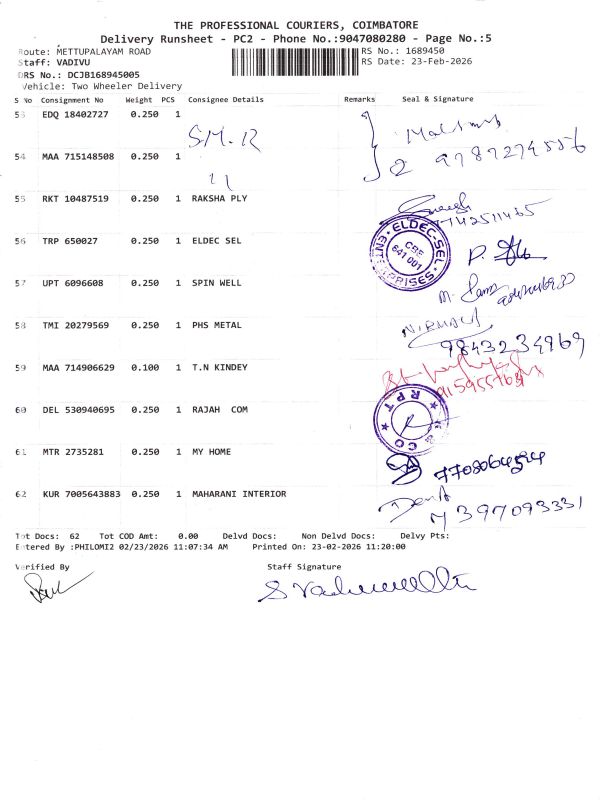 THE PROFESSIONAL COURIERS, COIMBATORE
Delivery Runsheet - PC2 - Phone No.:9047080280 - Page No.:5
Route: METTUPALAYAM ROAD RS No.: 1689450
Staff: VADIVU RS Date: 23-Feb-2026
DRS No.: DCJB168945005
Vehicle: Two Wheeler Delivery
S No Consignment No Weight PCS Consignee Details Remarks Seal & Signature
53 EDQ 18402727 0.250 1 SM.R
54 MAA 715148508 0.250 1 11
55 RKT 10487519 0.250 1 RAKSHA PLY
56 TRP 650027 0.250 1 ELDEC SEL
ELDEC-SEL ENTERPRISES CBE 641 001
57 UPT 6096608 0.250 1 SPIN WELL
58 TMI 20279569 0.250 1 PHS METAL NIRMALA
9843234969
59 MAA 714906629 0.100 1 T.N KINDEY
60 DEL 530940695 0.250 1 RAJAH COM
RPT & CO
61 MTR 2735281 0.250 1 MY HOME
62 KUR 7005643883 0.250 1 MAHARANI INTERIOR
7397093331
Tot Docs: 62 Tot COD Amt: 0.00 Delvd Docs: Non Delvd Docs: Delvy Pts:
Entered By :PHILOMI2 02/23/2026 11:07:34 AM Printed On: 23-02-2026 11:20:00
Verified By Staff Signature